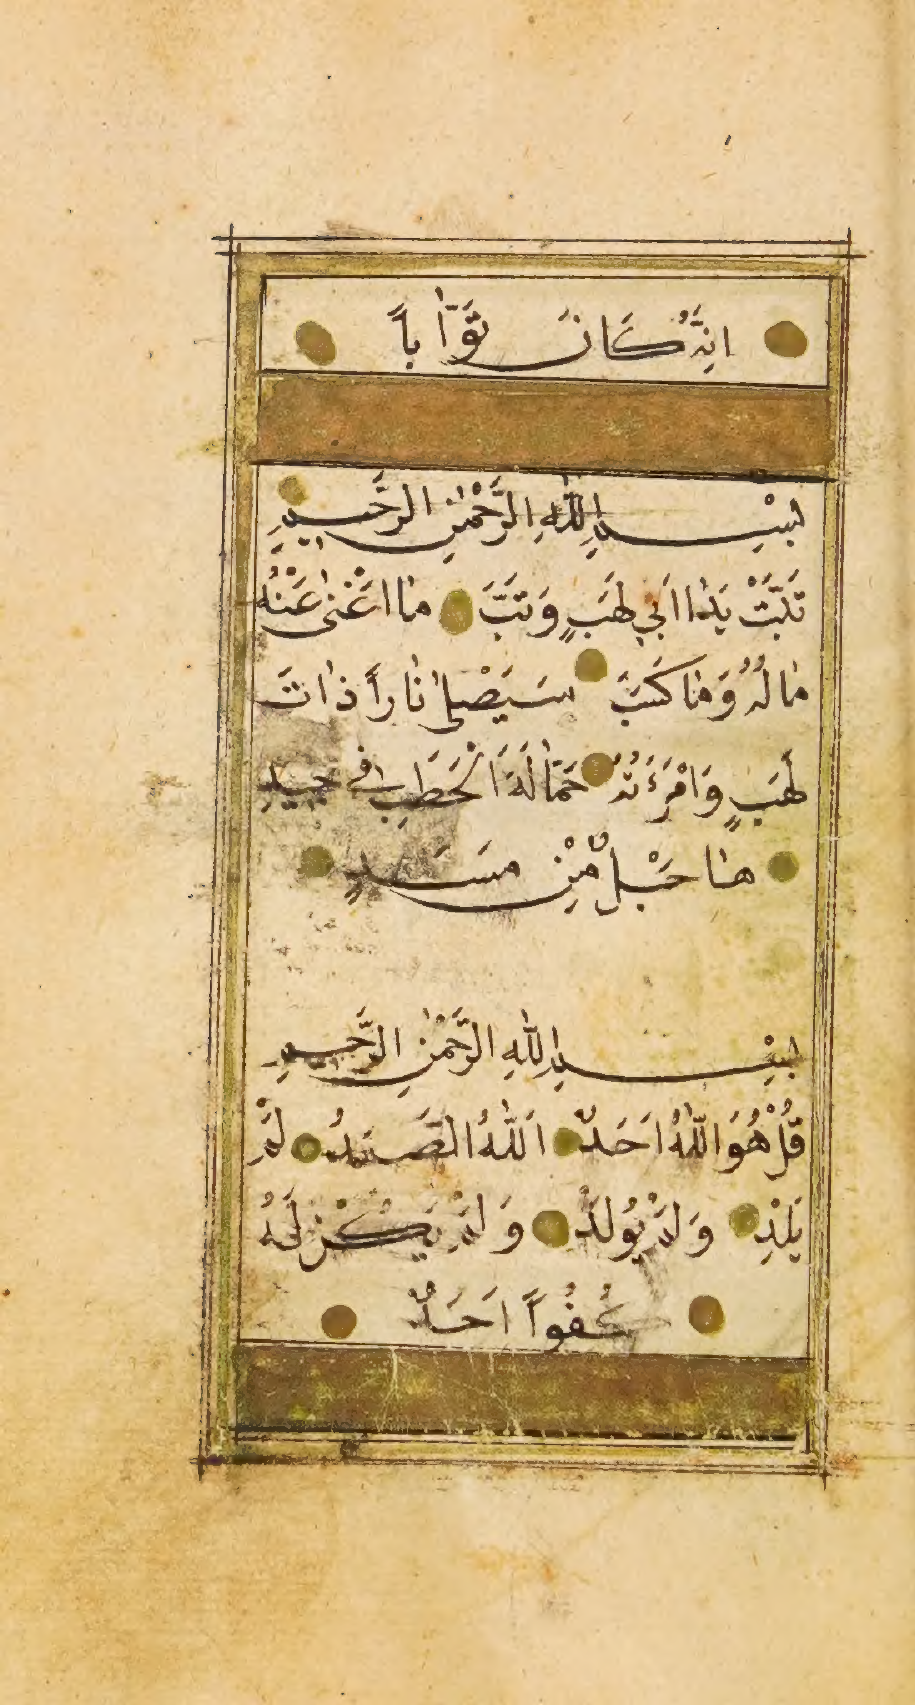 اِنَّهُ كَانَ تَوَّاباً
بِسْمِ اللّٰهِ الرَّحْمٰنِ الرَّحِيمِ
تَبَّتْ يَدٰا اَبِي لَهَبٍ وَتَبَّ مٰا اَغْنٰى عَنْهُ
مٰالُهُ وَمٰا كَسَبَ سَيَصْلىٰ نٰاراً ذٰاتَ
لَهَبٍ وَامْرَءَتُهُ حَمّٰالَةَ الْحَطَبِ فِي جِيدِ
هٰا حَبْلٌ مِنْ مَسَدٍ
بِسْمِ اللّٰهِ الرَّحْمٰنِ الرَّحِيمِ
قُلْ هُوَ اللّٰهُ اَحَدٌ اَللّٰهُ الصَّمَدُ لَمْ
يَلِدْ وَلَمْ يُولَدْ وَلَمْ يَكُنْ لَهُ
كُفُواً اَحَدٌ